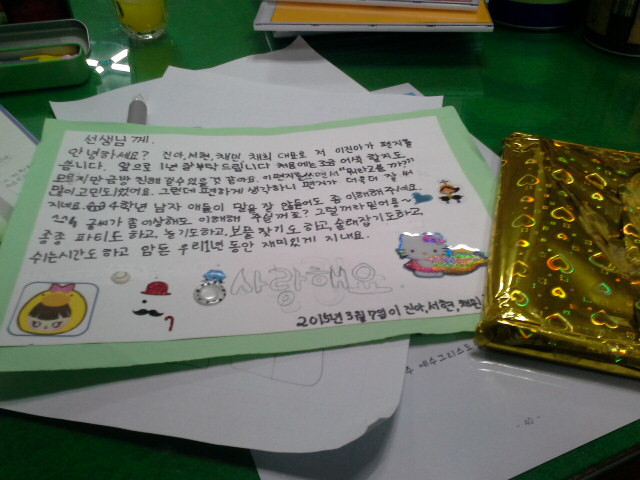 선생님께.
안녕하세요? 진아,서현,채민 채희 대표로 저 이진아가 편지를
씁니다. 앞으로 1년 잘부탁 드립니다 처음에는조금 어색 할지도
모르지만 금방 친해 질수있을것 같아요. 이편지를쓰면서 "뭐라고쓸까??"
많이고민도 되었어요. 그런데 편하게 생각하니 편지가 더욱더 잘 써
지네요. 4학년 남자 애들이 말을 잘 안들어도 좀 이해해 주세요.
글씨가 좀 이상해도 이해해 주실꺼죠? 그럴꺼라 믿어용~
종종 파티도 하고, 놀기도하고,보물 찾기도 하고,술래잡기도하고,
쉬는시간도 하고 암튼 우리1년 동안 재미있게 지내요.
사랑해요
2015년 3월 7일 이 진아,서현,채민
주 예수그리스도